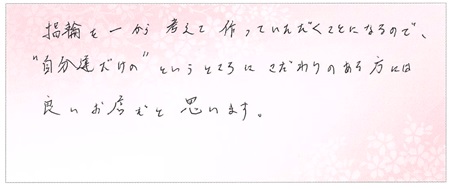 指輪を一から考えて作っていただくことになるので、
"自分達だけの"というところにこだわりのある方には
良いお店だと思います。